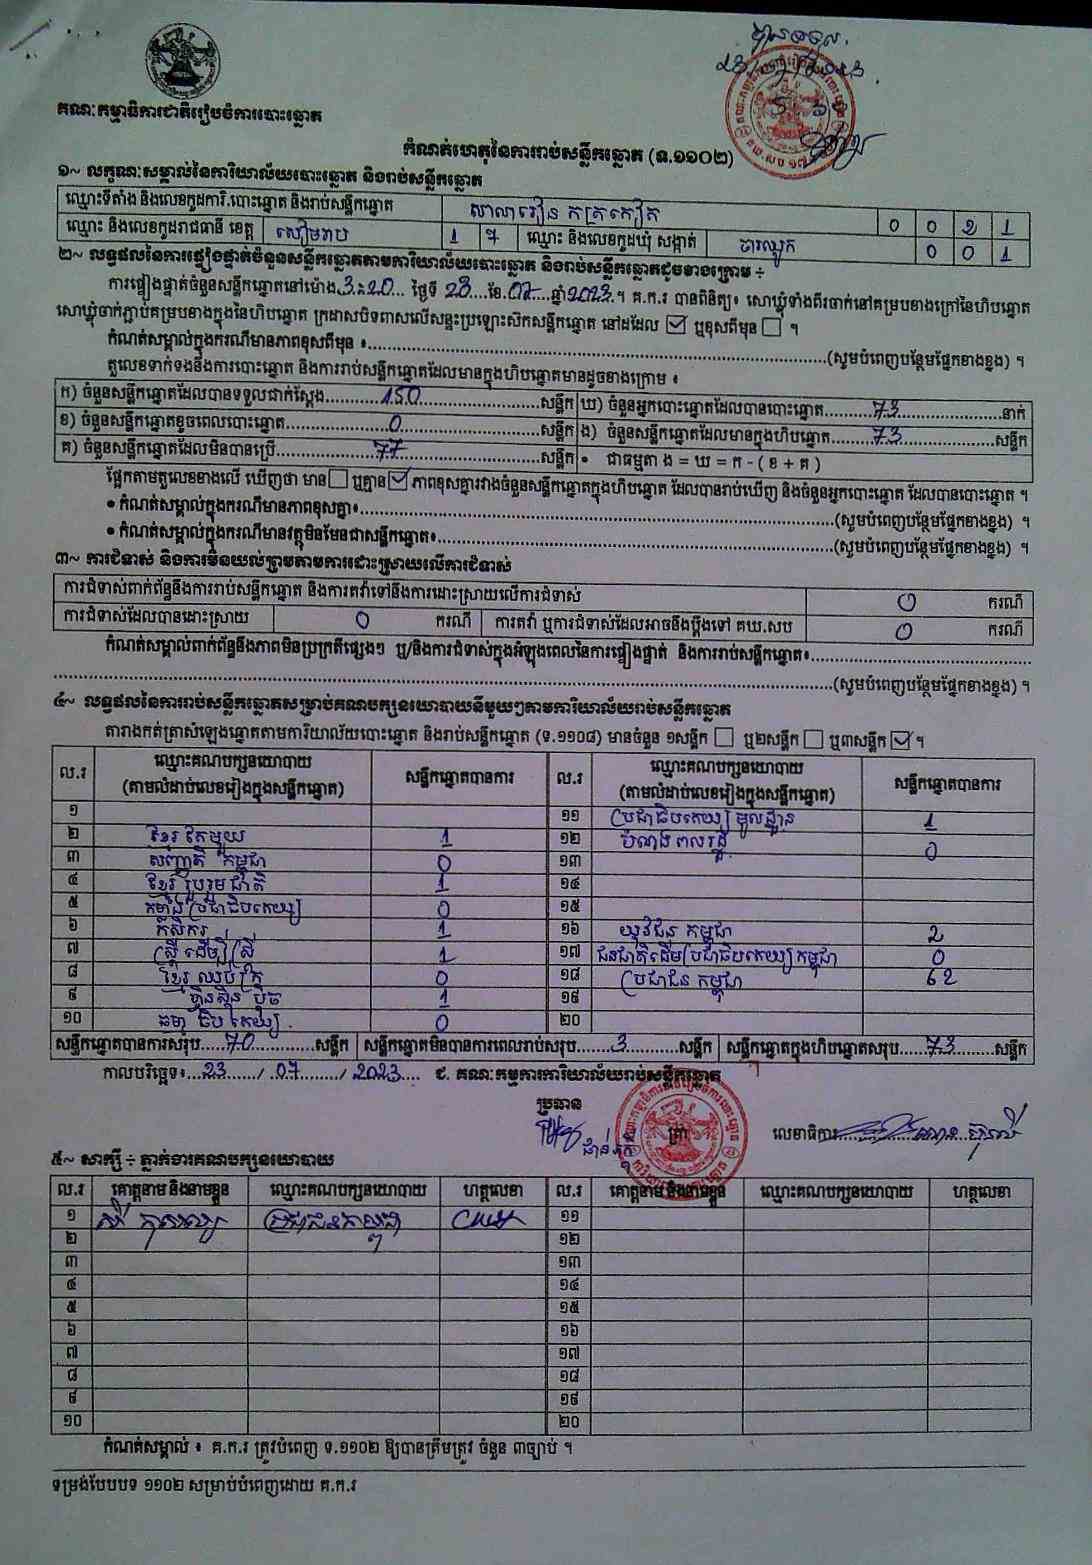 បានទទួល
គណៈកម្មាធិការជាតិរៀបចំការបោះឆ្នោត
កំណត់ហេតុនៃការរាប់សន្លឹកឆ្នោត (ទ.១១០២)
១~ លក្ខណៈសម្គាល់នៃការិយាល័យបោះឆ្នោត និងរាប់សន្លឹកឆ្នោត
ឈ្មោះទីតាំង និងលេខកូដការិ.បោះឆ្នោត និងរាប់សន្លឹកឆ្នោត សាលារៀន 0 0 2 1
ឈ្មោះ និងលេខកូដរាជធានី ខេត្ត សៀមរាប 1 7 ឈ្មោះ និងលេខកូដឃុំ សង្កាត់ 0 0 1
២~ លទ្ធផលនៃការផ្ទៀងផ្ទាត់ចំនួនសន្លឹកឆ្នោតតាមការិយាល័យបោះឆ្នោត និងរាប់សន្លឹកឆ្នោតដូចខាងក្រោម ÷
ការផ្ទៀងផ្ទាត់ចំនួនសន្លឹកឆ្នោតនៅម៉ោង 3:20 ថ្ងៃទី 23 ខែ 07 ឆ្នាំ 2023 ។ គ.ក.រ បានពិនិត្យ៖ សោឃ្លុំទាំងពីរចាក់នៅគម្របខាងក្រៅនៃហិបឆ្នោត
សោឃ្លុំចាក់ភ្ជាប់គម្របខាងក្នុងនៃហិបឆ្នោត ក្រដាសបិទពាសលើសន្ទះប្រឡោះសិកសន្លឹកឆ្នោត នៅដដែល ☑ ឬខុសពីមុន ☐ ។
កំណត់សម្គាល់ក្នុងករណីមានភាពខុសពីមុន ៖........(សូមបំពេញបន្ថែមផ្នែកខាងខ្នង) ។
តួលេខទាក់ទងនឹងការបោះឆ្នោត និងការរាប់សន្លឹកឆ្នោតដែលមានក្នុងហិបឆ្នោតមានដូចខាងក្រោម ៖
ក) ចំនួនសន្លឹកឆ្នោតដែលបានទទួលជាក់ស្តែង 150 សន្លឹក ឃ) ចំនួនអ្នកបោះឆ្នោតដែលបានបោះឆ្នោត 73 នាក់
ខ) ចំនួនសន្លឹកឆ្នោតខូចពេលបោះឆ្នោត 0 សន្លឹក ង) ចំនួនសន្លឹកឆ្នោតដែលមានក្នុងហិបឆ្នោត 73 សន្លឹក
គ) ចំនួនសន្លឹកឆ្នោតដែលមិនបានប្រើ 77 សន្លឹក • ជាធម្មតា ង = ឃ = ក - ( ខ + គ )
ផ្អែកតាមតួលេខខាងលើ ឃើញថា មាន ☐ ឬគ្មាន ☑ ភាពខុសគ្នារវាងចំនួនសន្លឹកឆ្នោតក្នុងហិបឆ្នោត ដែលបានរាប់ឃើញ និងចំនួនអ្នកបោះឆ្នោត ដែលបានបោះឆ្នោត ។
• កំណត់សម្គាល់ក្នុងករណីមានភាពខុសគ្នា៖........(សូមបំពេញបន្ថែមផ្នែកខាងខ្នង) ។
• កំណត់សម្គាល់ក្នុងករណីមានវត្ថុមិនមែនជាសន្លឹកឆ្នោត៖........(សូមបំពេញបន្ថែមផ្នែកខាងខ្នង) ។
៣~ ការជំទាស់ និងការមិនយល់ព្រមតាមការដោះស្រាយលើការជំទាស់
ការជំទាស់ពាក់ព័ន្ធនឹងការរាប់សន្លឹកឆ្នោត និងការតវ៉ាទៅនឹងការដោះស្រាយលើការជំទាស់ 0 ករណី
ការជំទាស់ដែលបានដោះស្រាយ 0 ករណី ការតវ៉ា ឬការជំទាស់ដែលអាចនឹងប្តឹងទៅ គឃ.សប 0 ករណី
កំណត់សម្គាល់ពាក់ព័ន្ធនឹងភាពមិនប្រក្រតីផ្សេងៗ ឬ/និងការជំទាស់ក្នុងអំឡុងពេលនៃការផ្ទៀងផ្ទាត់ និងការរាប់សន្លឹកឆ្នោត៖........
........(សូមបំពេញបន្ថែមផ្នែកខាងខ្នង) ។
៤~ លទ្ធផលនៃការរាប់សន្លឹកឆ្នោតសម្រាប់គណបក្សនយោបាយនីមួយៗតាមការិយាល័យរាប់សន្លឹកឆ្នោត
តារាងកត់ត្រាសំឡេងឆ្នោតតាមការិយាល័យបោះឆ្នោត និងរាប់សន្លឹកឆ្នោត (ទ.១១០៨) មានចំនួន ១សន្លឹក ☐ ឬ២សន្លឹក ☐ ឬ៣សន្លឹក ☑ ។
ល.រ ឈ្មោះគណបក្សនយោបាយ សន្លឹកឆ្នោតបានការ ល.រ ឈ្មោះគណបក្សនយោបាយ សន្លឹកឆ្នោតបានការ
(តាមលំដាប់លេខរៀងក្នុងសន្លឹកឆ្នោត) (តាមលំដាប់លេខរៀងក្នុងសន្លឹកឆ្នោត)
១ ១១ ប្រជាធិបតេយ្យ មូលដ្ឋាន 1
២ ខ្មែរ តែមួយ 1 ១២ បំណង ពលរដ្ឋ 0
៣ សញ្ជាតិ កម្ពុជា 0 ១៣
៤ ខ្មែរ រួបរួម ជាតិ 1 ១៤
៥ កម្លាំងប្រជាធិបតេយ្យ 0 ១៥
៦ កសិករ 1 ១៦ យុវជន កម្ពុជា 2
៧ ស្ត្រី ដើម្បីស្ត្រី 1 ១៧ ជនជាតិដើមប្រជាធិបតេយ្យកម្ពុជា 0
៨ ខ្មែរ ឈប់ក្រ 0 ១៨ ប្រជាជន កម្ពុជា 62
៩ ហ៊្វុនស៊ិនប៉ិច 1 ១៩
១០ ធម្មាធិបតេយ្យ 0 ២០
សន្លឹកឆ្នោតបានការសរុប 70 សន្លឹក សន្លឹកឆ្នោតមិនបានការពេលរាប់សរុប 3 សន្លឹក សន្លឹកឆ្នោតក្នុងហិបឆ្នោតសរុប 73 សន្លឹក
កាលបរិច្ឆេទ៖ 23 / 07 / 2023 ជ. គណៈកម្មការការិយាល័យរាប់សន្លឹកឆ្នោត
ប្រធាន
ត្រា លេខាធិការ
៥~ សាក្សី ÷ ភ្នាក់ងារគណបក្សនយោបាយ
ល.រ គោត្តនាម និងនាមខ្លួន ឈ្មោះគណបក្សនយោបាយ ហត្ថលេខា ល.រ គោត្តនាម និងនាមខ្លួន ឈ្មោះគណបក្សនយោបាយ ហត្ថលេខា
១ ប្រជាជនកម្ពុជា ១១
២ ១២
៣ ១៣
៤ ១៤
៥ ១៥
៦ ១៦
៧ ១៧
៨ ១៨
៩ ១៩
១០ ២០
កំណត់សម្គាល់ ៖ គ.ក.រ ត្រូវបំពេញ ទ.១១០២ ឱ្យបានត្រឹមត្រូវ ចំនួន ៣ច្បាប់ ។
ទម្រង់បែបបទ ១១០២ សម្រាប់បំពេញដោយ គ.ក.រ